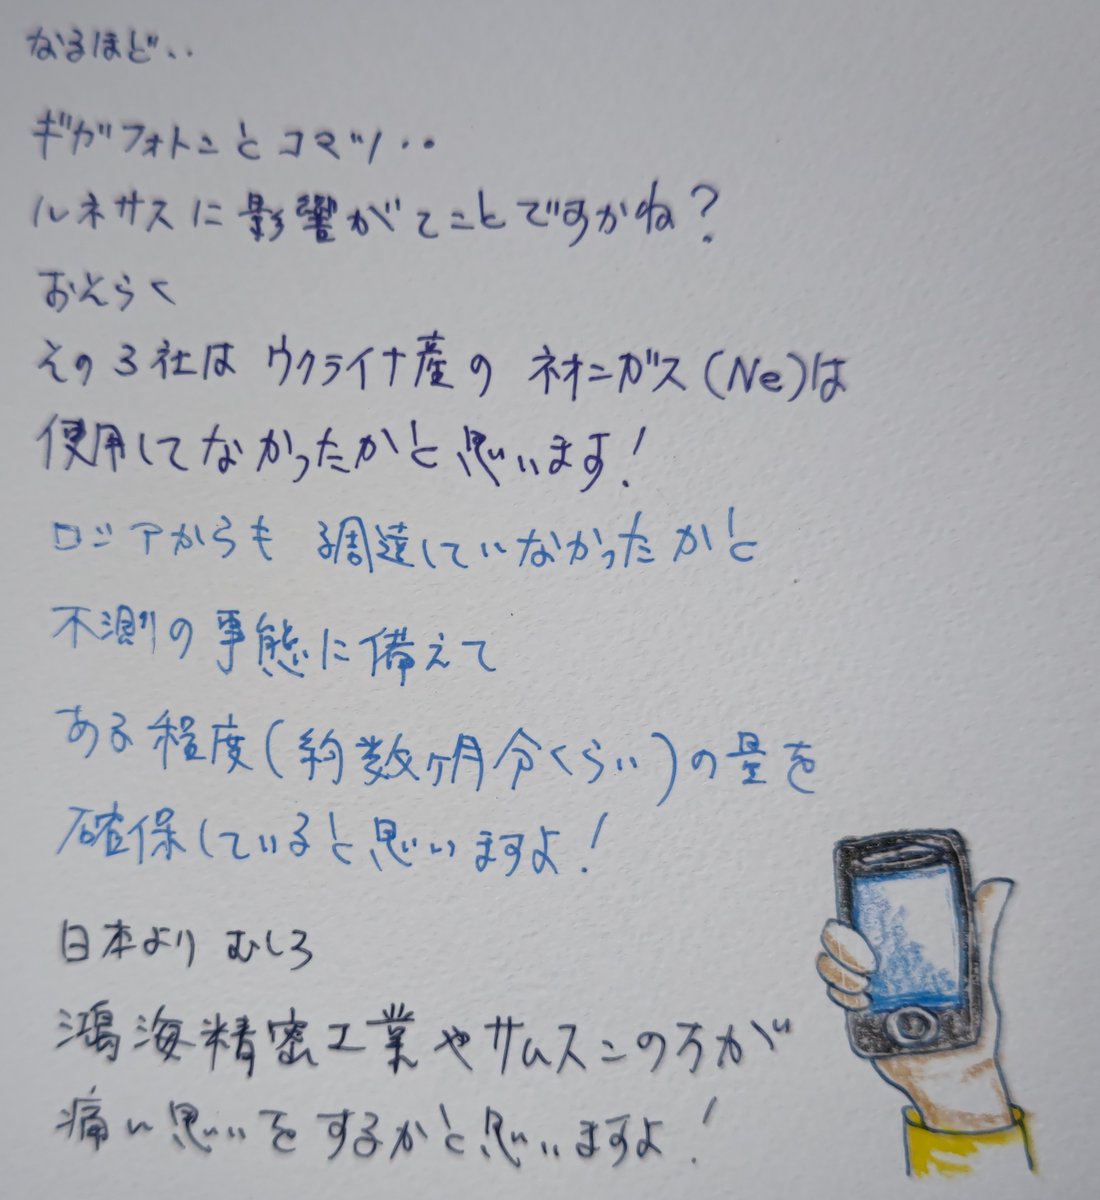 なるほど‥
ギガフォトンとコマツ‥
ルネサスに影響がてことですかね？
おそらく
その3社はウクライナ産のネオンガス(Ne)は
使用してなかったかと思います！
ロシアからも調達していなかったかと
不測の事態に備えて
ある程度(約数ヶ月分くらい)の量を
確保していると思いますよ！
日本よりむしろ
鴻海精密工業やサムスンの方が
痛い思いをするかと思いますよ！